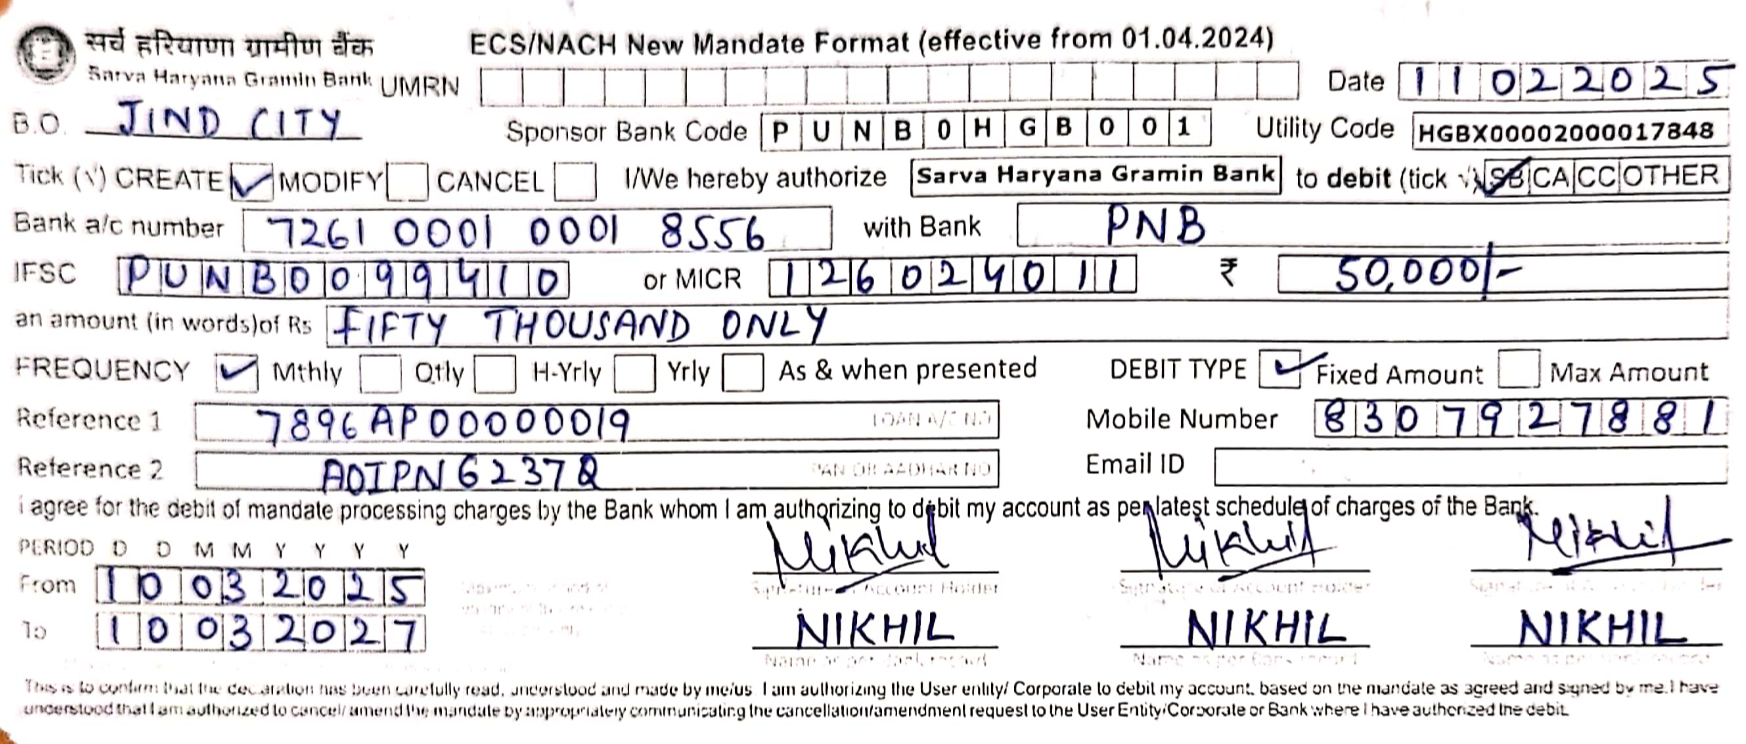 सर्व हरियाणा ग्रामीण बैंक ECS/NACH New Mandate Format (effective from 01.04.2024)
Sarva Haryana Gramin Bank UMRN Date 11022025
B.O. JIND CITY Sponsor Bank Code PUNB0HGB001 Utility Code HGBX00002000017848
Tick (√) CREATE ✓ MODIFY CANCEL I/We hereby authorize Sarva Haryana Gramin Bank to debit (tick √) SB CA CC OTHER
Bank a/c number 7261 0001 0001 8556 with Bank PNB
IFSC PUNB0099410 or MICR 126024011 ₹ 50,000/-
an amount (in words)of Rs FIFTY THOUSAND ONLY
FREQUENCY ✓ Mthly Qtly H-Yrly Yrly As & when presented DEBIT TYPE ✓ Fixed Amount Max Amount
Reference 1 7896AP00000019 LOAN A/C NO Mobile Number 8307927881
Reference 2 AOIPN6237Q PAN OR AADHAR NO Email ID
i agree for the debit of mandate processing charges by the Bank whom I am authorizing to debit my account as per latest schedule of charges of the Bank.
PERIOD D D M M Y Y Y Y Nikhil Nikhil Nikhil
From 10032025 Signature Account Holder Signature of Account Holder
To 10032027 NIKHIL NIKHIL NIKHIL
Name as per Bank record Name as per Bank record Name as per Bank record
This is to confirm that the declaration has been carefully read, understood and made by me/us. I am authorizing the User entity/ Corporate to debit my account, based on the mandate as agreed and signed by me. I have
understood that I am authorized to cancel/ amend the mandate by appropriately communicating the cancellation/amendment request to the User Entity/Corporate or Bank where I have authorized the debit.